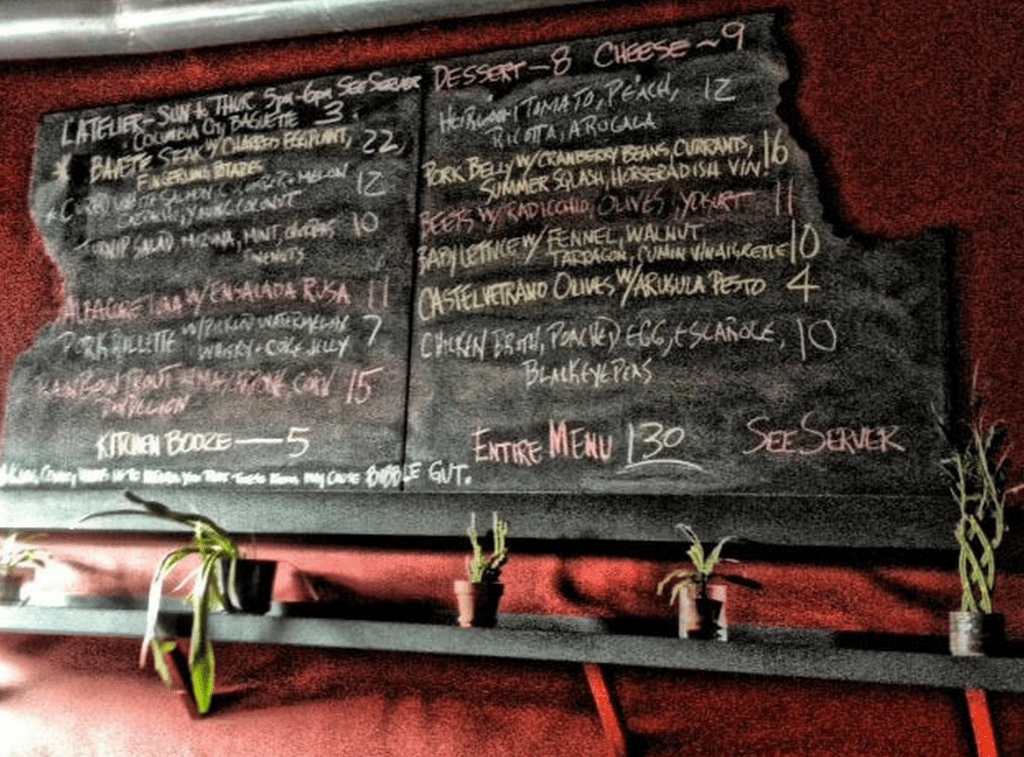 L'ATELIER - SUN to THUR 5pm-6pm SEE SERVER
COLUMBIA CITY BAGUETTE 3
* BAVETTE STEAK W/ CHARRED EGGPLANT, 22
FINGERLING
SALMON MELON 12
YOUNG COCONUT
SALAD MIZUNA, MINT, 10
TUNA W/ ENSALADA RUSA 11
PORK RILLETTE W/ PICKLED WATERMELON 7
WHISKY + COKE JELLY
RAINBOW TROUT CORN 15
KITCHEN BOOZE — 5
THESE ITEMS MAY CAUSE BUBBLE GUT.
DESSERT - 8 CHEESE ~ 9
HEIRLOOM TOMATO, PEACH, 12
RICOTTA, ARUGALA
PORK BELLY W/ CRANBERRY BEANS, CURRANTS, 16
SUMMER SQUASH, HORSERADISH VIN!
BEETS W/ RADICCHIO, OLIVES, YOGURT 11
BABY LETTUCE W/ FENNEL, WALNUT 10
TARRAGON, CUMIN VINAIGRETTE
CASTELVETRANO OLIVES W/ ARUGULA PESTO 4
CHICKEN BROTH, POACHED EGG, ESCAROLE, 10
BLACKEYE PEAS
ENTIRE MENU 130 SEE SERVER